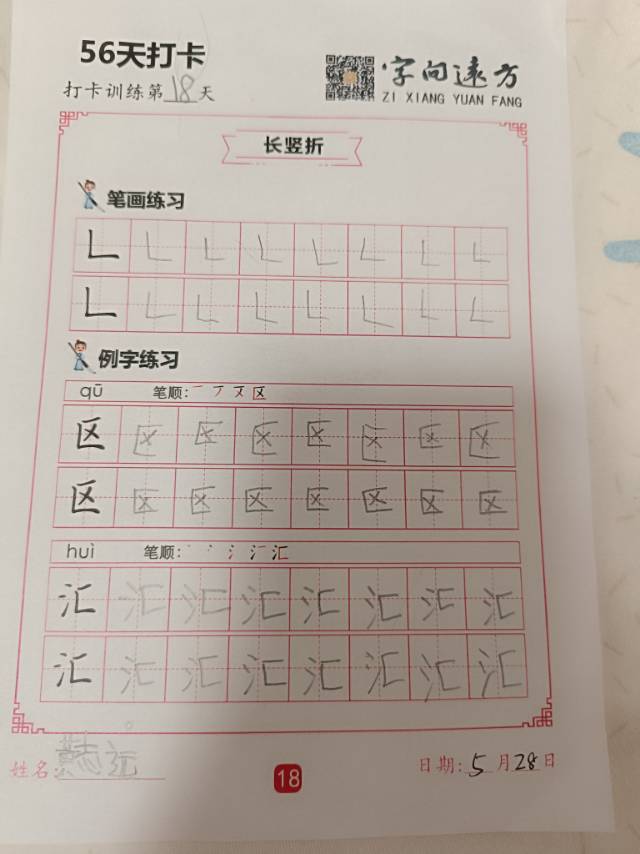 56天打卡
打卡训练第18天
字向远方
ZI XIANG YUAN FANG
长竖折
笔画练习
𠃊 𠃊 𠃊 𠃊 𠃊 𠃊 𠃊 𠃊
𠃊 𠃊 𠃊 𠃊 𠃊 𠃊 𠃊 𠃊
例字练习
qū 笔顺: 一 丆 又 区
区 区 区 区 区 区 区 区
区 区 区 区 区 区 区 区
huì 笔顺: 丶 冫 氵 汇 汇
汇 汇 汇 汇 汇 汇 汇 汇
汇 汇 汇 汇 汇 汇 汇 汇
姓名: 志远
18
日期: 5月28日